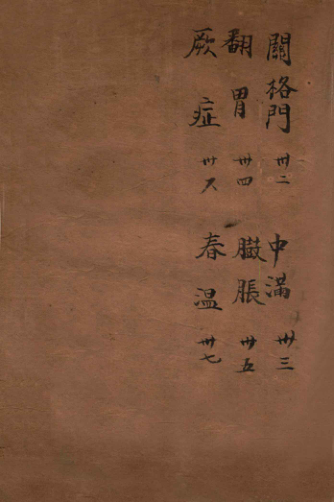 關格門 卅二 中滿 卅三
翻胃 卅四 臌脹 卅五
厥症 卅六 春温 卅七